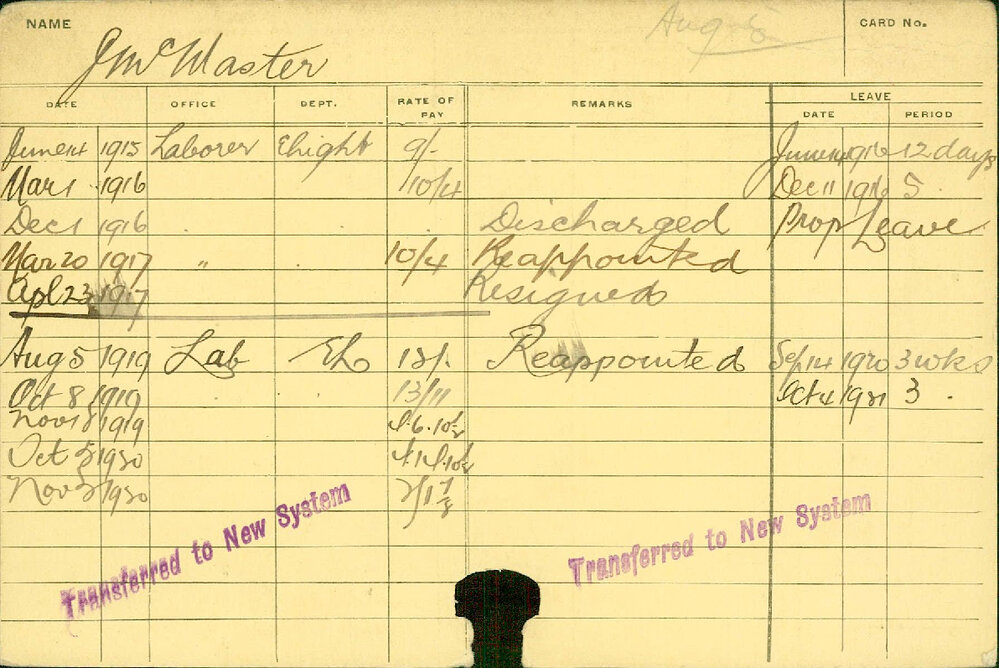 NAME
J McMaster
Aug 5
CARD No.
DATE OFFICE DEPT. RATE OF PAY REMARKS LEAVE
DATE PERIOD
June 14 1915 Laborer Ehight 9/- June 14 1916 12 days
Mar 1 1916 10/4 Dec 11 1916 5
Dec 1 1916 Discharged Prop Leave
Mar 20 1917 " 10/4 Reappointed
Apl 23 1917 Resigned
Aug 5 1919 Lab Eh 13/. Reappointed Sep 14 1920 3 wks
Oct 8 1919 13/11 Oct 4 1921 3 .
Nov 1919
Oct 1920
Nov 1920
Transferred to New System
Transferred to New System